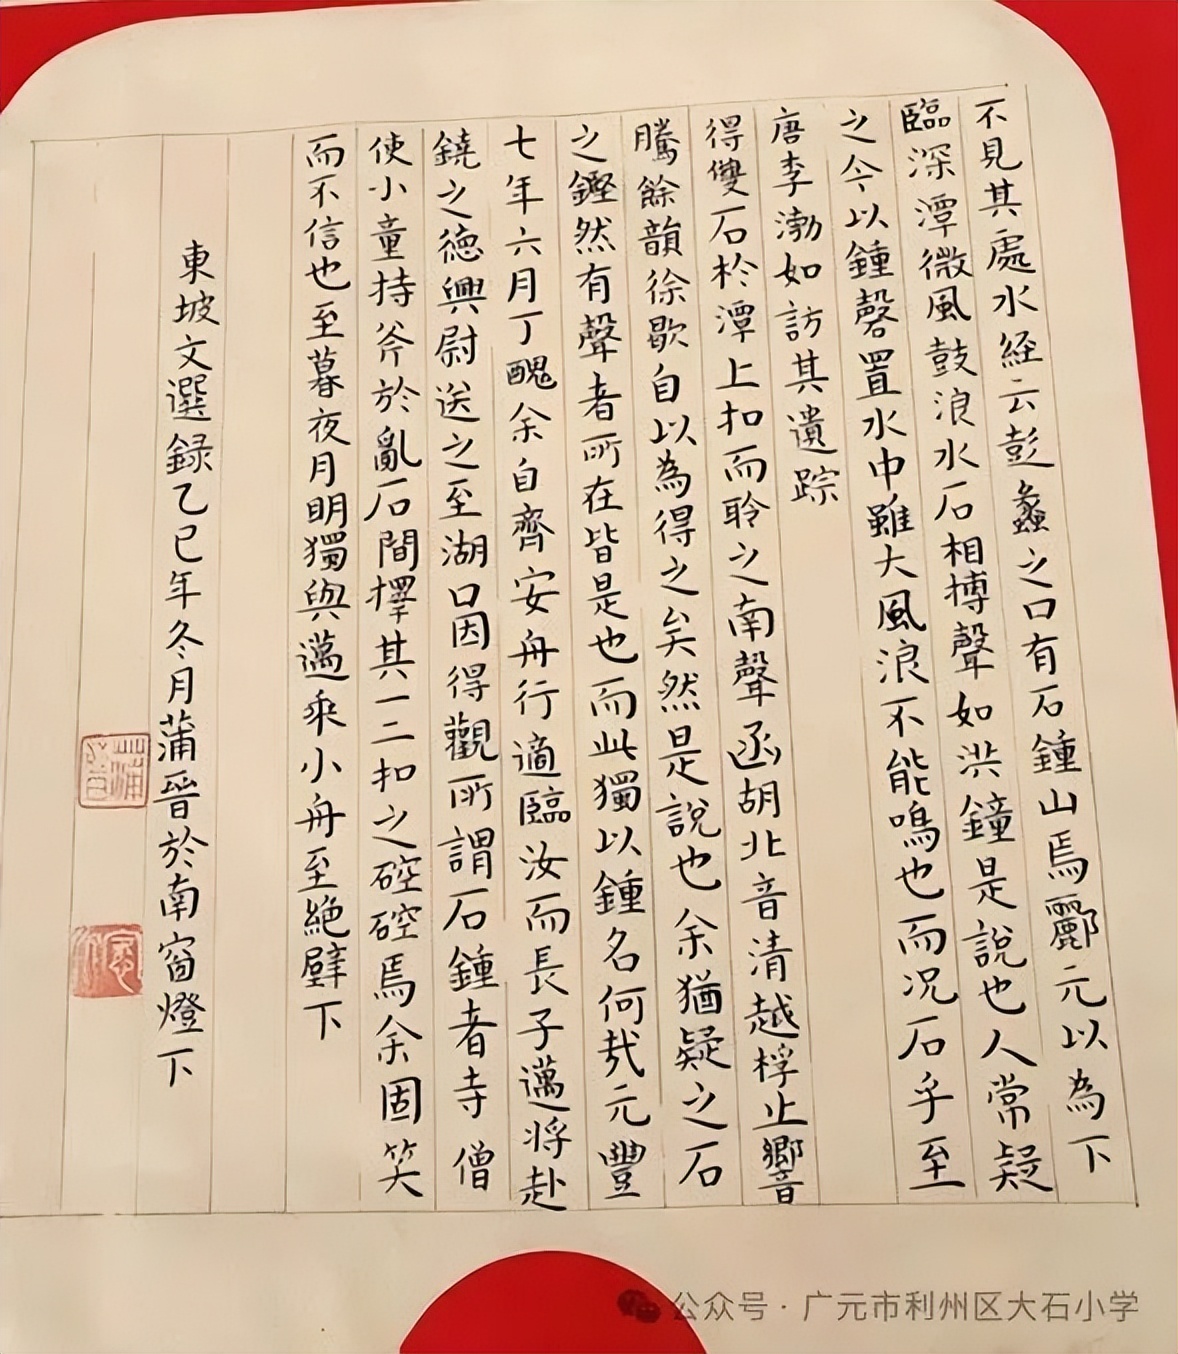 不見其處水経云彭蠡之口有石鍾山焉酈元以為下
臨深潭微風鼓浪水石相搏聲如洪鐘是說也人常疑
之今以鍾磬置水中雖大風浪不能鳴也而況石乎至
唐李渤如訪其遺踪
得雙石於潭上扣而聆之南聲函胡北音清越桴止響
騰餘韻徐歇自以為得之矣然是說也余猶疑之石
之鏗然有聲者所在皆是也而此獨以鍾名何哉元豐
七年六月丁醜余自齊安舟行適臨汝而長子邁將赴
鐃之德興尉送之至湖口因得觀所謂石鍾者寺僧
使小童持斧於亂石間擇其一二扣之硿硿焉余固笑
而不信也至暮夜月明獨與邁乘小舟至絕壁下
東坡文選録乙巳年冬月蒲晉於南窗燈下
公众号·广元市利州区大石小学